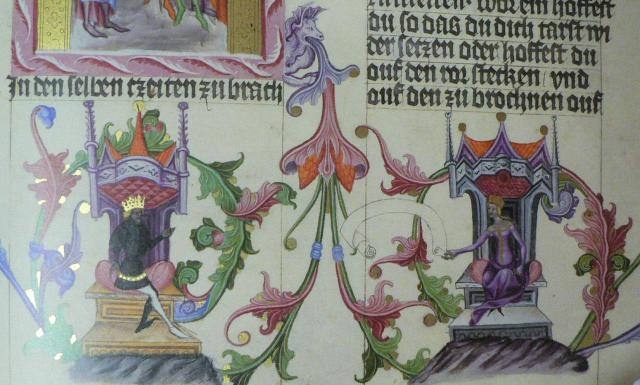 In den selben czeiten zu brach
du so das du dich tarst wi
der setzen oder hoffest du
auf den rorstecken vnd
auf den zu brochnen auf